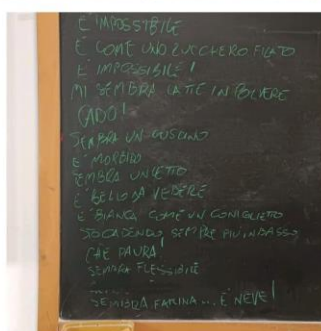 È IMPOSSIBILE
È COME UNO ZUCCHERO FILATO
È IMPOSSIBILE!
MI SEMBRA LATTE IN POLVERE
CADO!
SEMBRA UN CUSCINO
È MORBIDO
SEMBRA UN LETTO
È BELLO DA VEDERE
È BIANCA COME UN CONIGLIETTO
STO CADENDO SEMPRE PIÙ IN BASSO
CHE PAURA!
SEMBRA FLESSIBILE
SEMBRA FARINA... È NEVE!